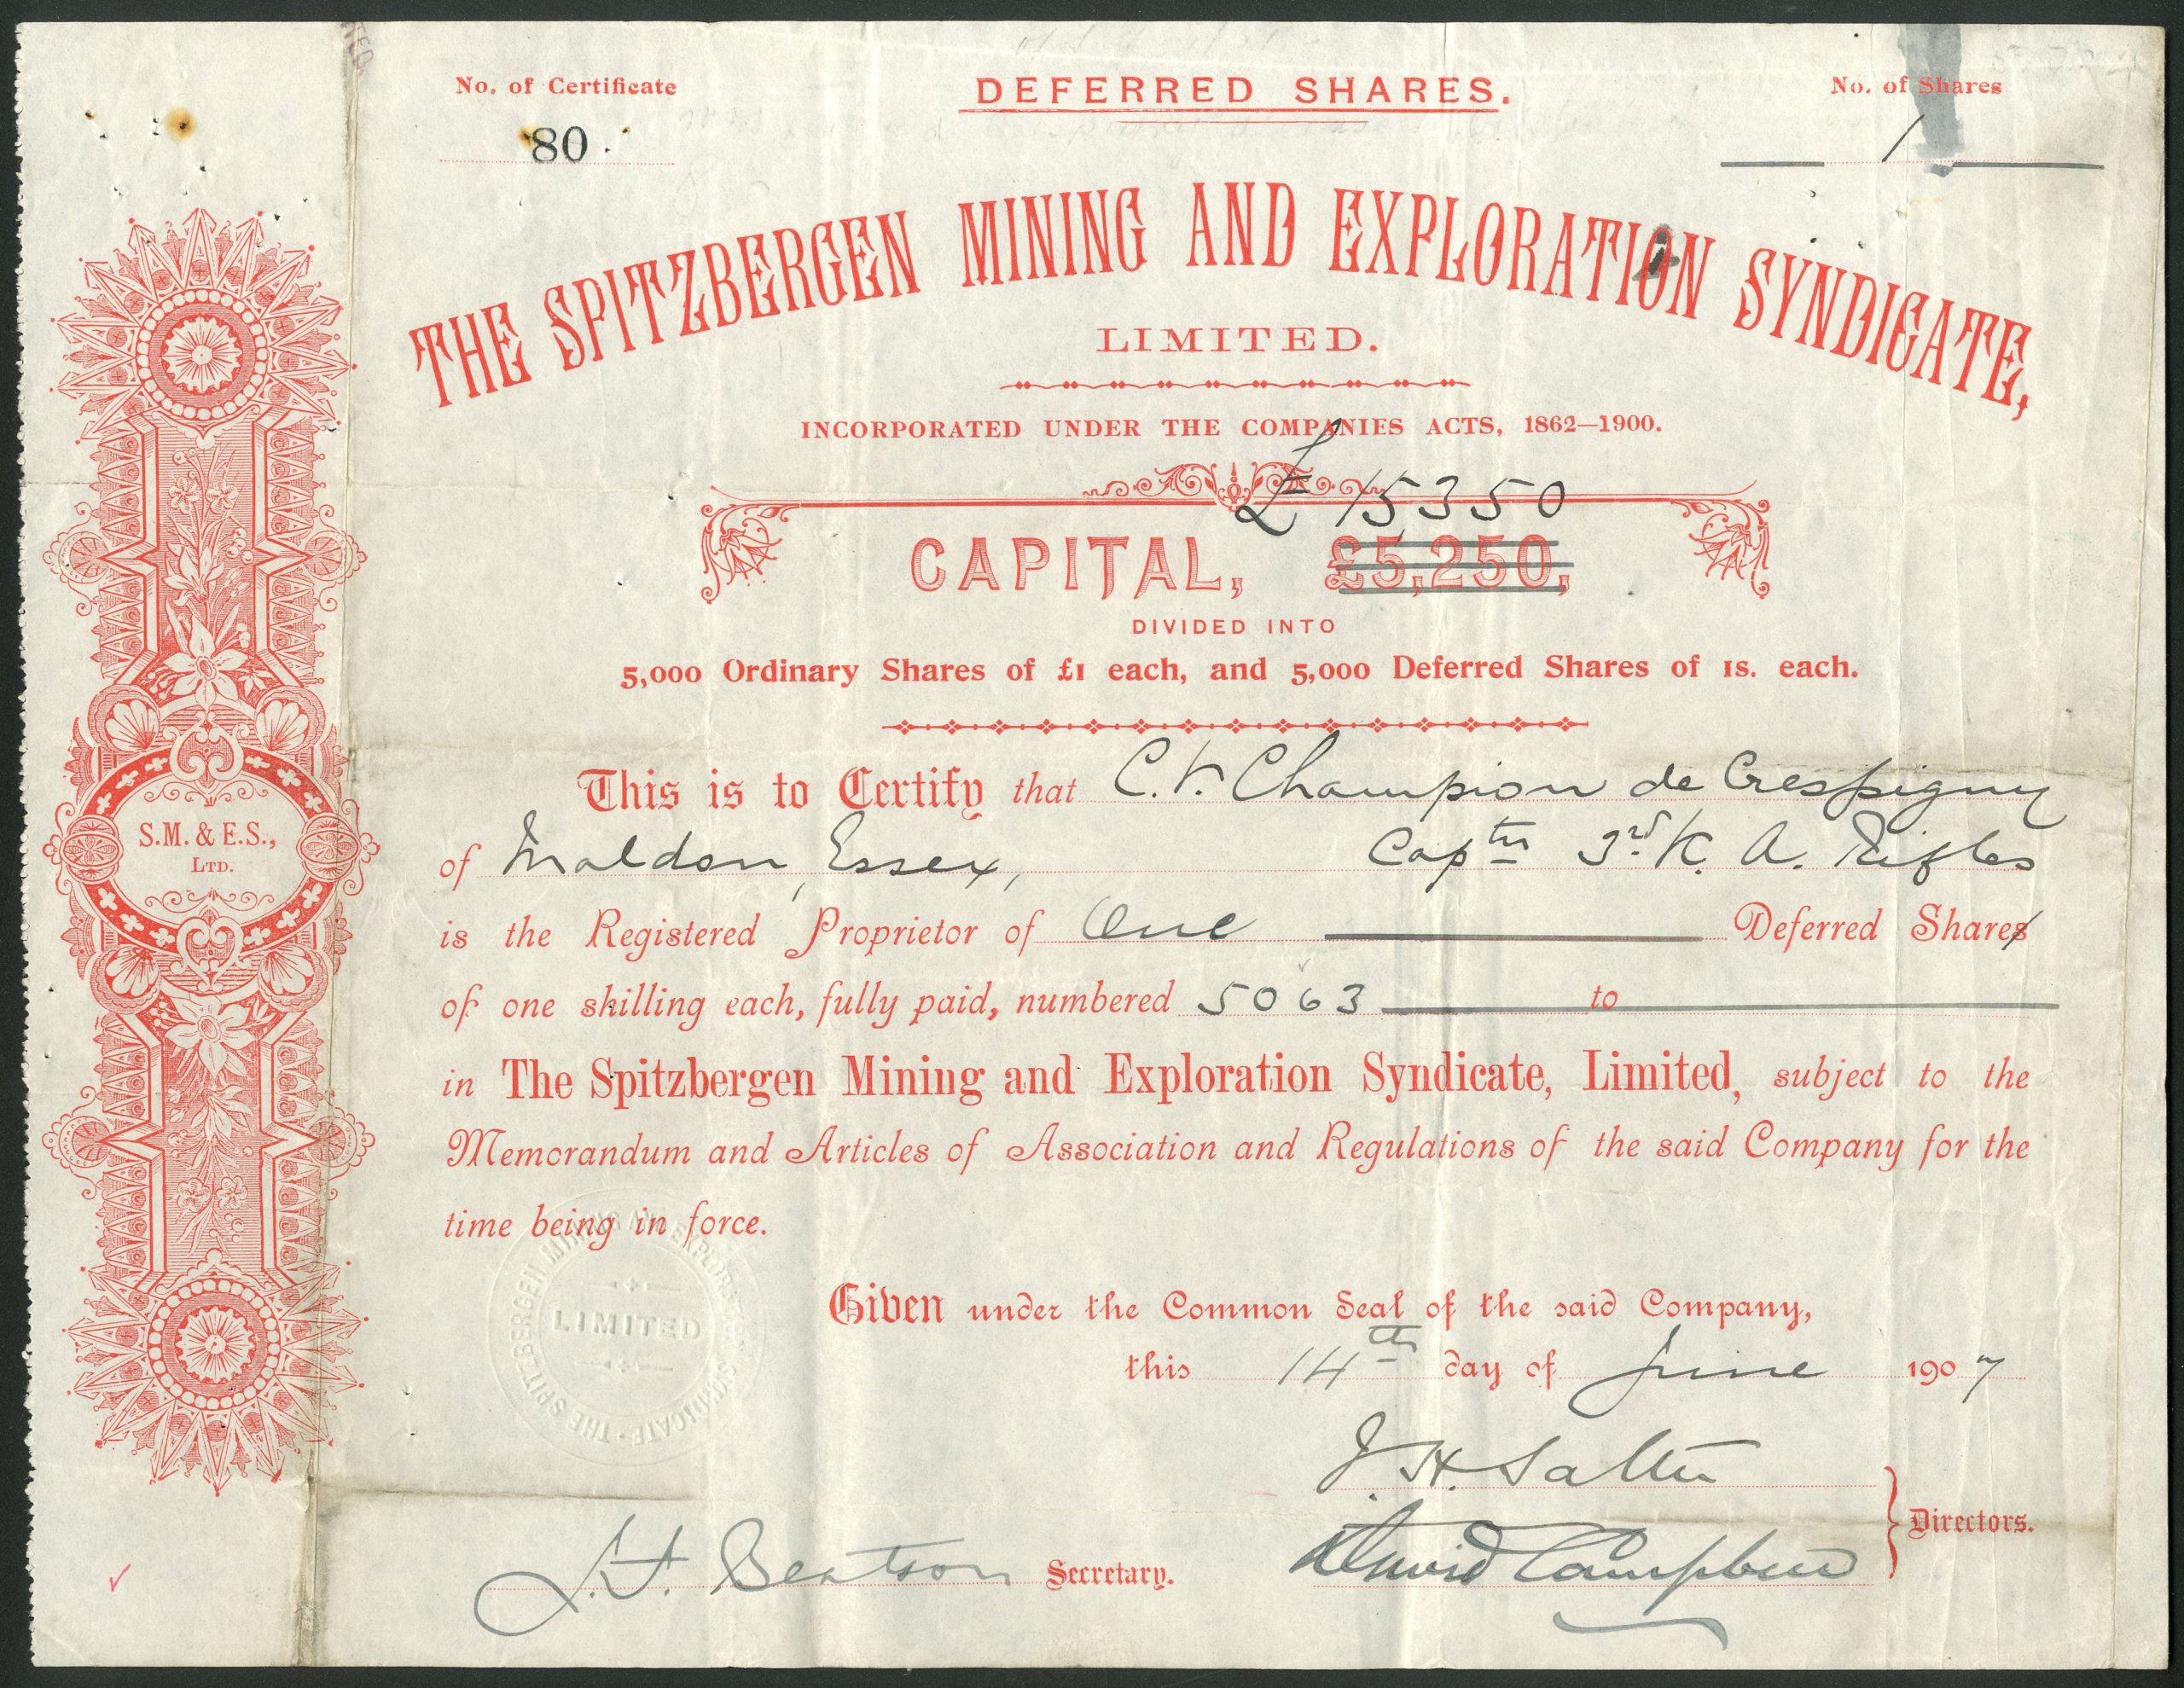 No. of Certificate
80
DEFERRED SHARES.
No. of Shares
1
THE SPITZBERGEN MINING AND EXPLORATION SYNDICATE,
LIMITED.
INCORPORATED UNDER THE COMPANIES ACTS, 1862—1900.
£15350
CAPITAL, £5,250,
DIVIDED INTO
5,000 Ordinary Shares of £1 each, and 5,000 Deferred Shares of 1s. each.
This is to Certify that C. V. Champion de Crespigny
of Maldon, Essex, Captn 3rd K. A. Rifles
is the Registered Proprietor of One Deferred Shares
of one shilling each, fully paid, numbered 5063 to
in The Spitzbergen Mining and Exploration Syndicate, Limited, subject to the
Memorandum and Articles of Association and Regulations of the said Company for the
time being in force.
Given under the Common Seal of the said Company,
this 14th day of June 1907
J. H. Salter
David Campbell
Directors.
Beatson Secretary.
S.M. & E.S.,
LTD.
THE SPITZBERGEN MINING AND EXPLORATION SYNDICATE
LIMITED